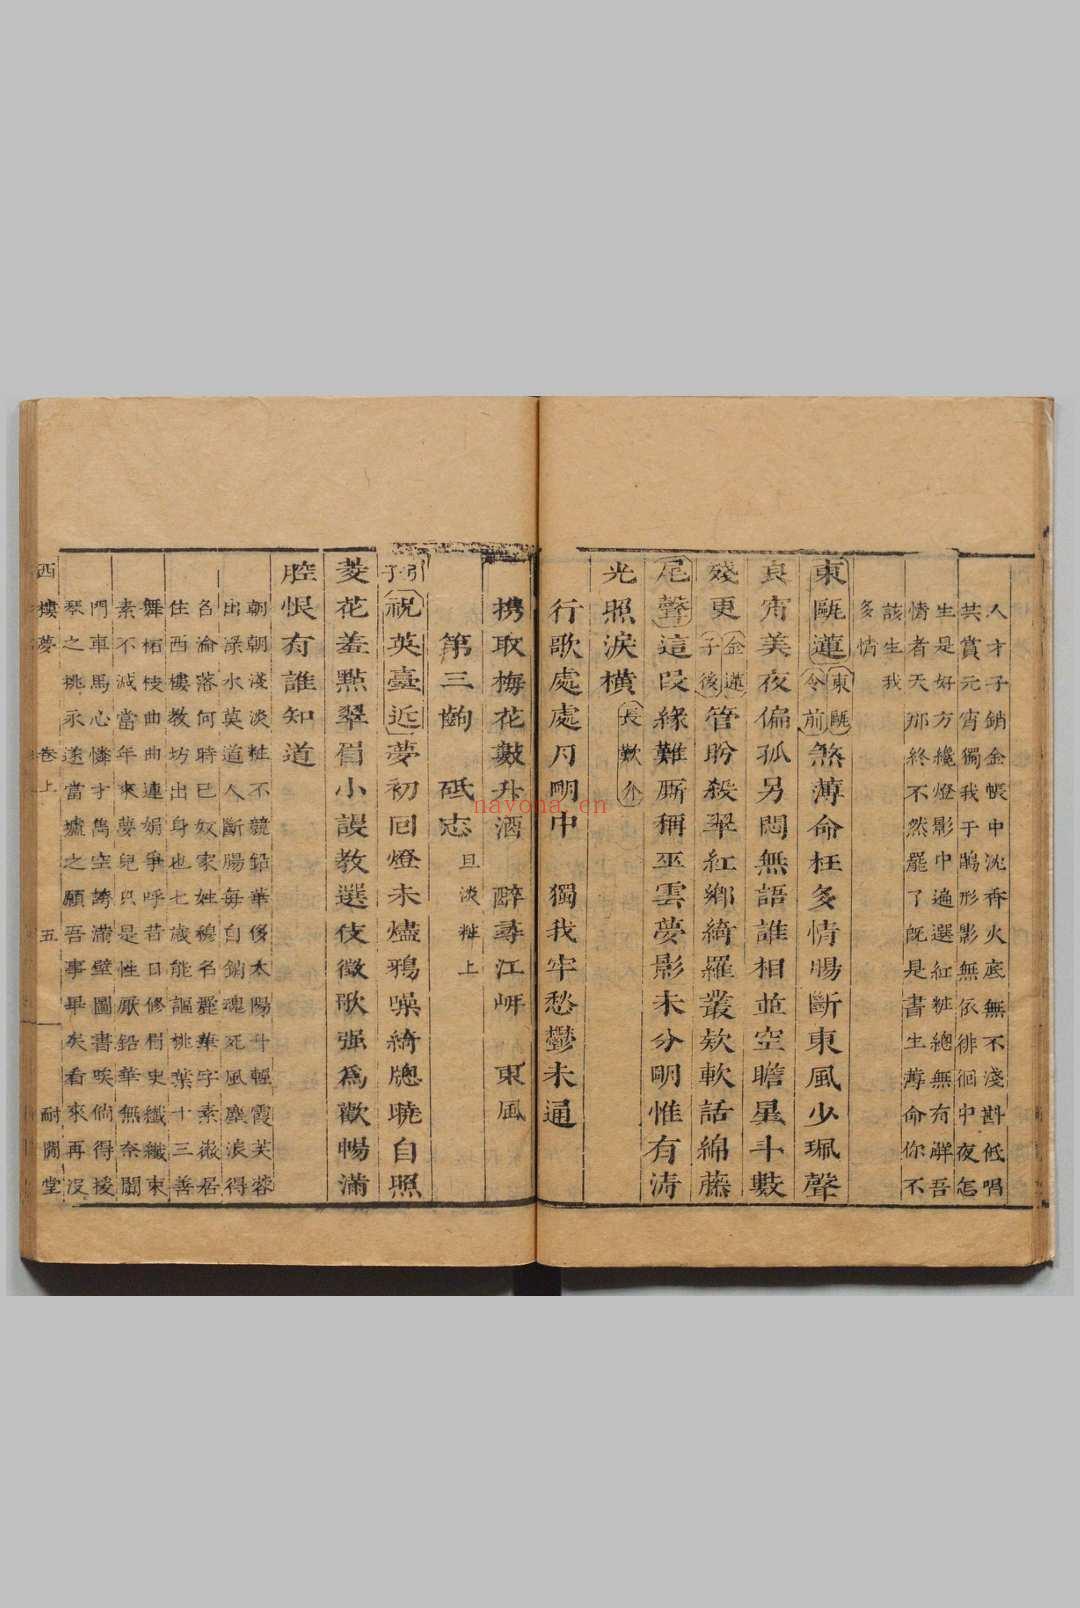 人才子銷金帳中沈香火底無不淺斟低唱
共賞元宵獨我于鵑形影無依徘徊中夜怎
生是好方纔燈影中遍選紅粧總無有解吾
情者天那終不然罷了旣是書生薄命你不
該生我
多情
東甌蓮
東甌令前
煞薄命枉多情腸斷東風少珮聲
良宵美夜偏孤另悶無語誰相並空瞻星斗數
殘更
金蓮子後
管盼殺翠紅鄉綺羅叢欵軟話綿藤
尾聲
這叚緣難厮稱巫雲夢影未分明惟有淸
光照淚橫
長歎介
行歌處處月明中 獨我牢愁鬱未通
携取梅花數升酒 醉尋江岍 東風
第三齣 砥志
旦淡粧上
引子
祝英臺近
夢初回燈未燼鴉噪綺牕曉自照
菱花羞點翠眉小謾教選伎徵歌强爲歡暢滿
腔恨有誰知道
朝朝淺淡粧不競鉛華 後太陽斗輕霞芙蓉
出淥水莫道人斷腸每自銷魂死風塵浪得
名淪落何時已奴家姓穆名麗華字素徽居
住西樓教坊出身也七歲能謳桃葉十三善
舞柘枝曲曲連娟爭呼昔日修眉史纖纖束
素不減當年來夢兒只是性厭鉛華無奈闐
門車馬心憐才雋空誇滿壁圖書唉倘得接
琴之挑永遂當壚之願吾事畢矣看來再沒
西樓夢 卷上 五 耐閒堂
navona.cn